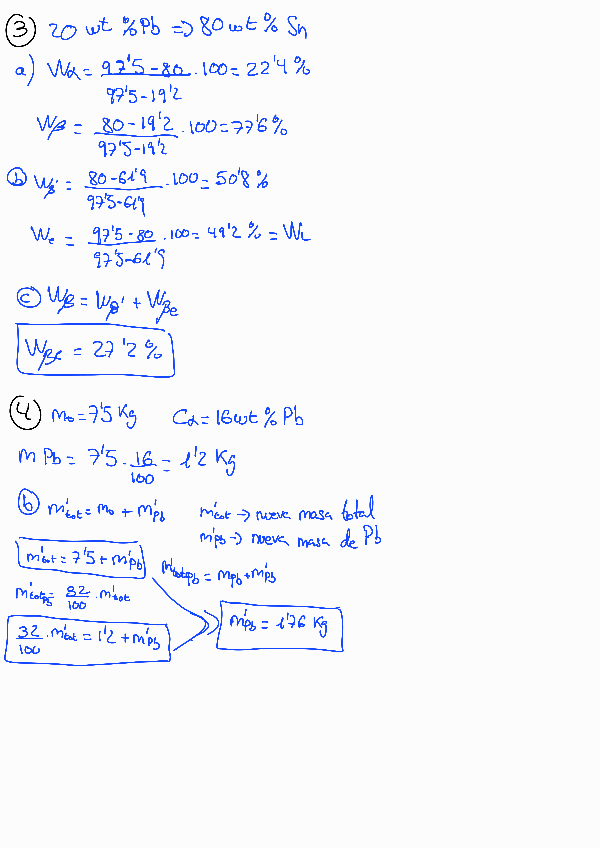 ③ 20 wt %Pb => 80 wt % Sn
a) Wα = (97'5 - 80)/(97'5 - 19'2) · 100 = 22'4 %
Wβ = (80 - 19'2)/(97'5 - 19'2) · 100 = 77'6 %
ⓑ Wβ' = (80 - 61'9)/(97'5 - 61'9) · 100 = 50'8 %
We = (97'5 - 80)/(97'5 - 61'9) · 100 = 49'2 % = WL
ⓒ Wβ = Wβ' + Wβe
Wβe = 27'2 %
④ m₀ = 7'5 Kg Cα = 16 wt % Pb
m Pb = 7'5 · 16/100 = 1'2 Kg
ⓑ m'tot = m₀ + m'Pb m'tot -> nueva masa total
m'Pb -> nueva masa de Pb
m'tot = 7'5 + m'Pb
m'totPb = mPb + m'Pb
m'totPb = 32/100 · m'tot
32/100 · m'tot = 1'2 + m'Pb
m'Pb = 1'76 Kg